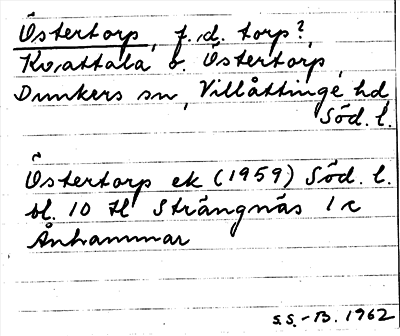 Östertorp, f.d. torp?,
Kvattala o. Östertorp,
Dunkers sn, Villåttinge hd,
Söd. l.
Östertorp ek (1959) Söd. l.
bl. 10 H Strängnäs 1 c
Ånhammar
S.S.-B. 1962